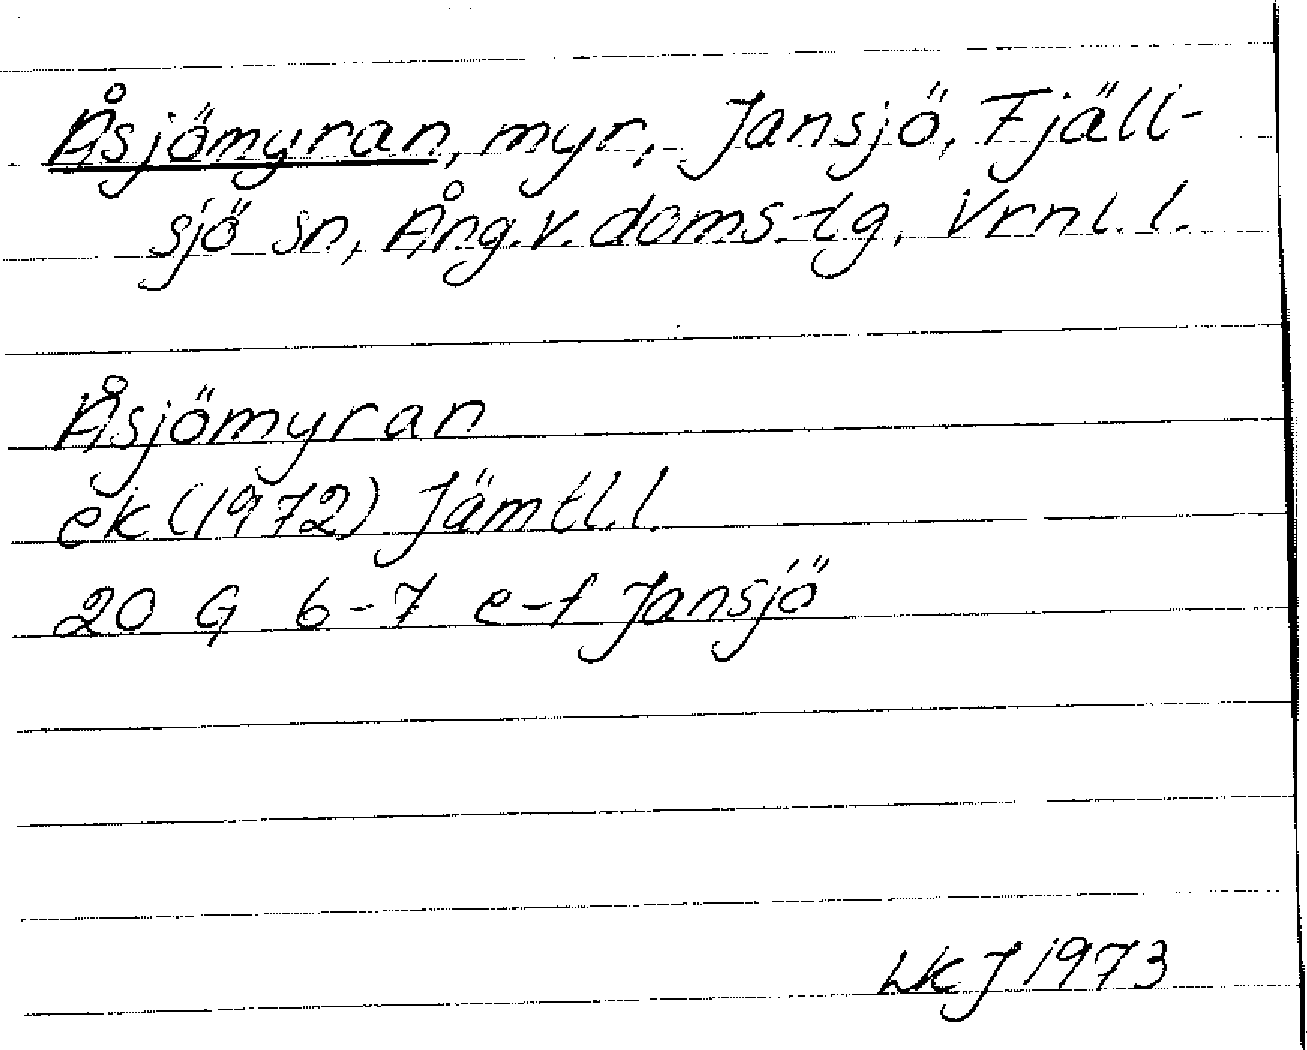 Åsjömyran, myr, Jansjö, Fjäll-
sjö sn, Ång. v. doms.-tg, Vrnl. l.
Åsjömyran
ek (1972) Jämtl. l.
20 G 6-7 e-f Jansjö
LKJ 1973